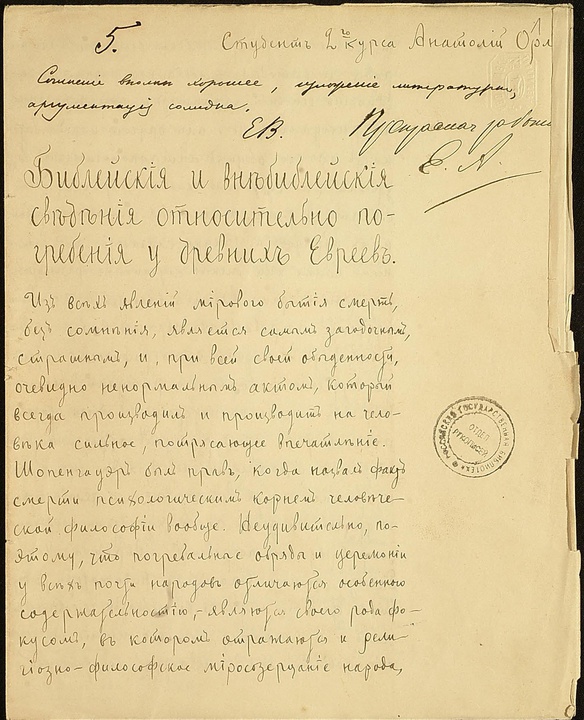 5.
Студентъ 2го курса Анатолій Орл
Сочиненіе вполнѣ хорошее, изложеніе литературно,
аргументація солидна.
ЕВ.
Прекрасная работа
Е. А.
Библейскія и внѣбиблейскія
свѣдѣнія относительно по-
гребенія у древнихъ Евреевъ.
Изъ всѣхъ явленій мірового бытія смерть,
безъ сомнѣнія, является самымъ загадочнымъ,
страшнымъ, и, при всей своей обыденности,
очевидно ненормальнымъ актомъ, который
всегда производилъ и производитъ на чело-
вѣка сильное, потрясающее впечатлѣніе.
Шопенгауэръ былъ правъ, когда назвалъ фактъ
смерти психологическимъ корнемъ человѣче-
ской философіи вообще. Неудивительно, по-
этому, что погребальные обряды и церемоніи
у всѣхъ почти народовъ отличаются особенною
содержательностію, – являются своего рода фо-
кусомъ, въ которомъ отражаются и рели-
гіозно-философское міросозерцаніе народа,
РОССИЙСКАЯ ГОСУДАРСТВЕННАЯ БИБЛИОТЕКА
ОТДЕЛ
РУКОПИСЕЙ